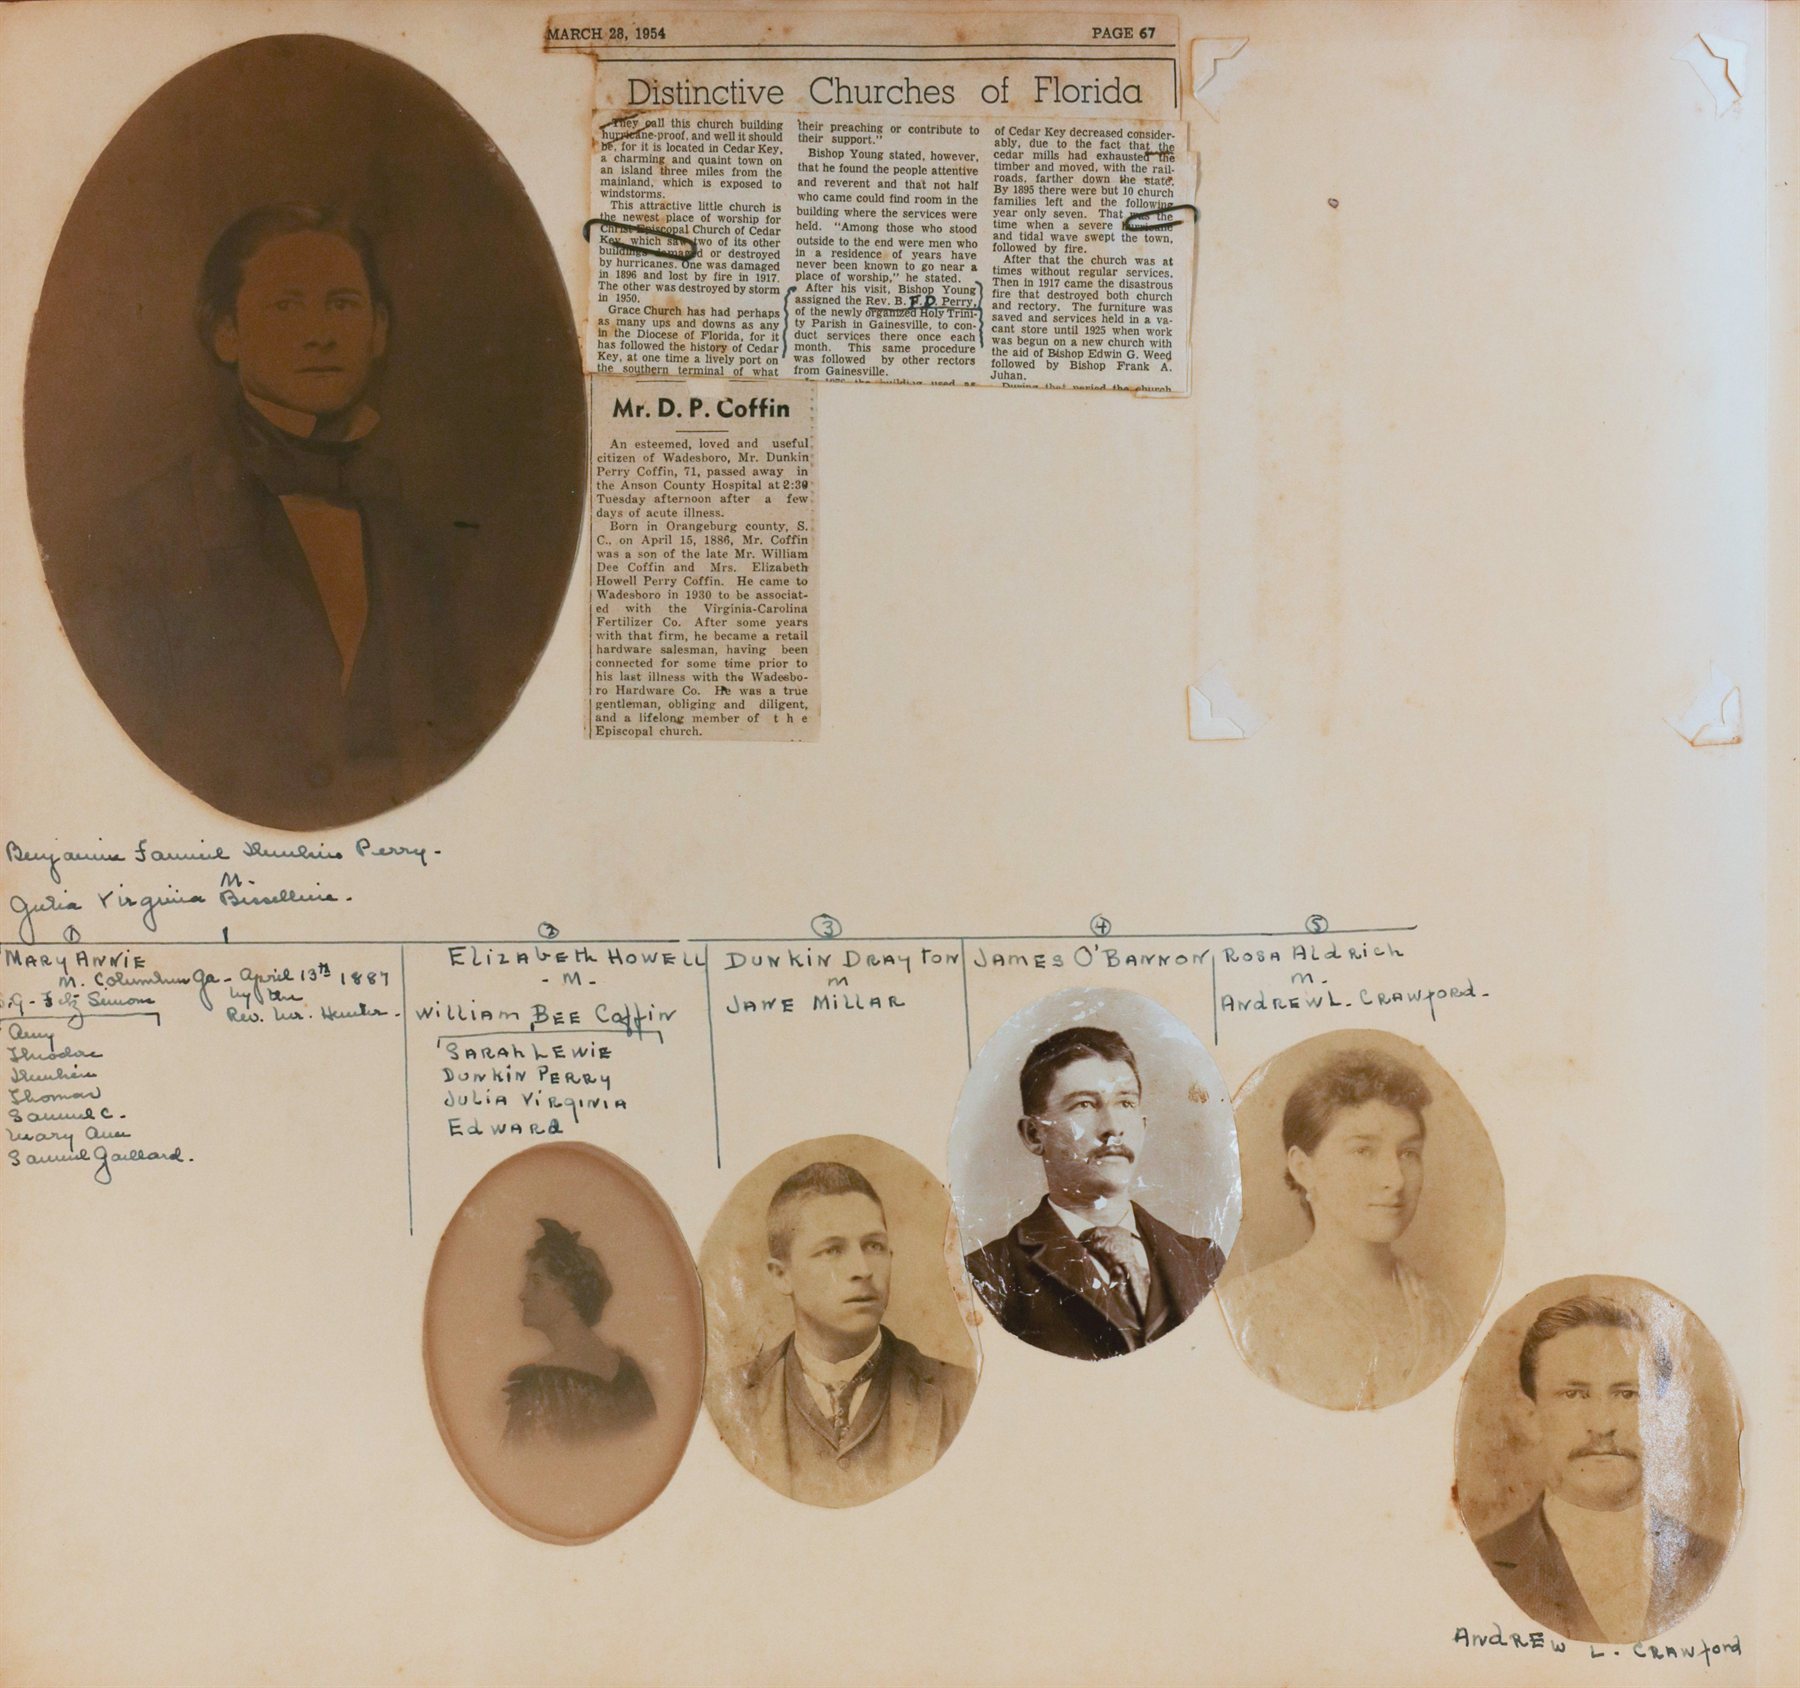 MARCH 28, 1954 PAGE 67
Distinctive Churches of Florida
They call this church building
hurricane-proof, and well it should
be, for it is located in Cedar Key,
a charming and quaint town on
an island three miles from the
mainland, which is exposed to
windstorms.
This attractive little church is
the newest place of worship for
Christ Episcopal Church of Cedar
Key, which saw two of its other
buildings damaged or destroyed
by hurricanes. One was damaged
in 1896 and lost by fire in 1917.
The other was destroyed by storm
in 1950.
Grace Church has had perhaps
as many ups and downs as any
in the Diocese of Florida, for it
has followed the history of Cedar
Key, at one time a lively port on
the southern terminal of what
their preaching or contribute to
their support."
Bishop Young stated, however,
that he found the people attentive
and reverent and that not half
who came could find room in the
building where the services were
held. "Among those who stood
outside to the end were men who
in a residence of years have
never been known to go near a
place of worship," he stated.
After his visit, Bishop Young
assigned the Rev. B. F. D. Perry,
of the newly organized Holy Trini-
ty Parish in Gainesville, to con-
duct services there once each
month. This same procedure
was followed by other rectors
from Gainesville.
In 1876 the building used as
of Cedar Key decreased consider-
ably, due to the fact that the
cedar mills had exhausted the
timber and moved, with the rail-
roads, farther down the state.
By 1895 there were but 10 church
families left and the following
year only seven. That was the
time when a severe hurricane
and tidal wave swept the town,
followed by fire.
After that the church was at
times without regular services.
Then in 1917 came the disastrous
fire that destroyed both church
and rectory. The furniture was
saved and services held in a va-
cant store until 1925 when work
was begun on a new church with
the aid of Bishop Edwin G. Weed
followed by Bishop Frank A.
Juhan.
During that period the church
Mr. D. P. Coffin
An esteemed, loved and useful
citizen of Wadesboro, Mr. Dunkin
Perry Coffin, 71, passed away in
the Anson County Hospital at 2:30
Tuesday afternoon after a few
days of acute illness.
Born in Orangeburg county, S.
C., on April 15, 1886, Mr. Coffin
was a son of the late Mr. William
Dee Coffin and Mrs. Elizabeth
Howell Perry Coffin. He came to
Wadesboro in 1930 to be associat-
ed with the Virginia-Carolina
Fertilizer Co. After some years
with that firm, he became a retail
hardware salesman, having been
connected for some time prior to
his last illness with the Wadesbo-
ro Hardware Co. He was a true
gentleman, obliging and diligent,
and a lifelong member of the
Episcopal church.
Benjamin Faneuil Dunkin Perry-
M-
Julia Virginia Bisselline.
1 2 3 4 5
MARY ANNIE
M. Columbus Ga - April 13th 1887
by the
S.G - Fitz Simons
Rev. Wr. Hunter -
Amy
Theodore
Dunkin
Thomas
Samuel C.
Mary Ann
Samuel Gaillard.
ELIZABETH HOWELL
- M -
William BEE Coffin
SARAH LEWIE
DUNKIN PERRY
JULIA VIRGINIA
EDWARD
DUNKIN DRAYTON
m
JANE MILLAR
JAMES O'BANNON
ROSA ALDRICH
m.
ANDREW L. CRAWFORD-
ANDREW L. CRAWFORD